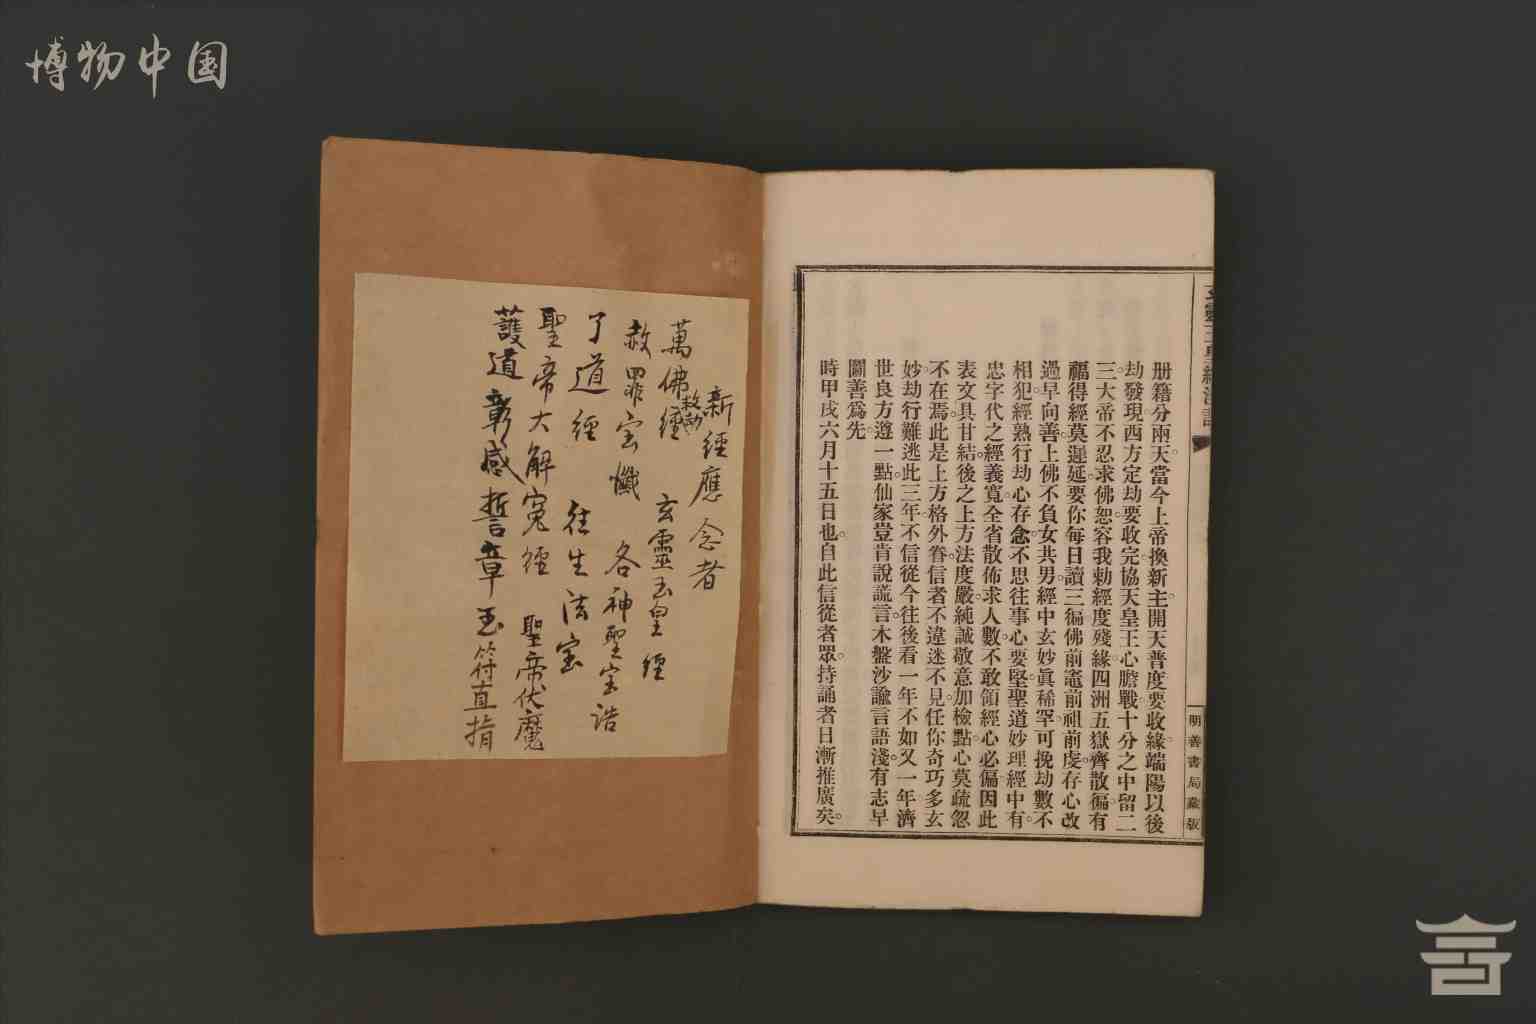 博物中国
新經應念者
萬佛救劫經 玄靈玉皇經
赦罪宝懺 各神聖宝誥
了道經 往生法宝
聖帝大解冤經 聖帝伏魔
護道彰感誓章 玉符直指
册籍分兩天。當今上帝換新主。開天普度要收緣。端陽以後
劫發現。西方定劫要收完。協天皇王心膽戰。十分之中留二
三。大帝不忍求佛恕。容我勅經度殘緣。四洲五嶽齊散徧。有
福得經莫遲延。要你每日讀三徧。佛前竈前祖前虔。存心改
過早向善。上佛不負女共男。經中玄妙眞稀罕。可挽劫數不
相犯。經熟行劫心存念。不思往事心要堅。聖道妙理經中有。
忠字代之經義寬。全省散佈求人數。不敢領經心必偏。因此
表文具甘結。後之上方法度嚴。純誠敬意加檢點。心莫疏忽
不在焉。此是上方格外眷。信者不違迷不見。任你奇巧多玄
妙。劫行難逃此三年。不信從今往後看。一年不如又一年。濟
世良方遵一點。仙家豈肯說謊言。木盤沙諭言語淺。有志早
闢善爲先。
時甲戌六月十五日也。自此信從者眾。持誦者日漸推廣矣。
明善書局藏版